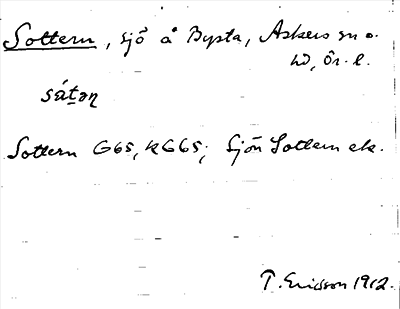 Sottern, sjö å Bysta, Askers sn o.
hd, Ör. l.
såtəɳ
Sottern G65, KG65; Sjön Sottern ek.
T. Ericsson 1912.